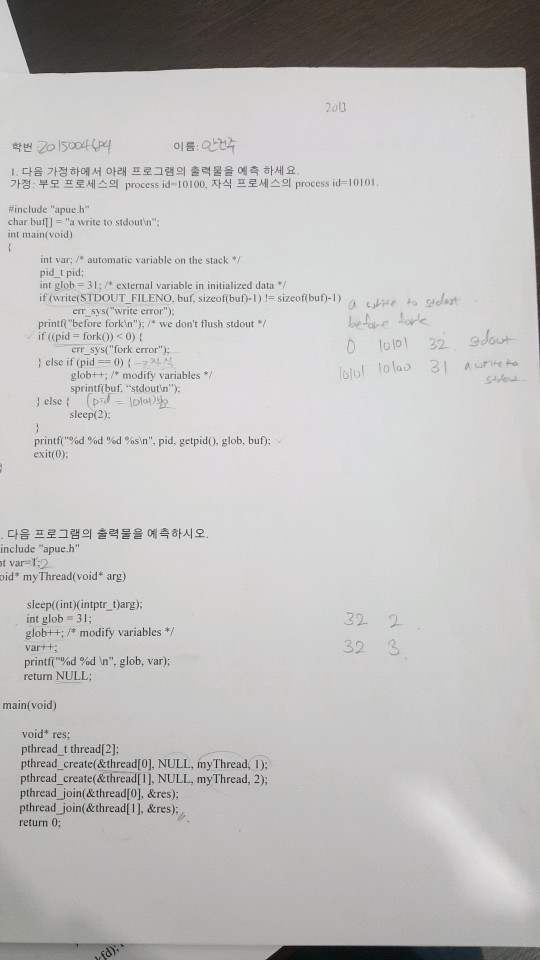 2013
학번 2015004684 이름:
1. 다음 가정하에서 아래 프로그램의 출력물을 예측 하세요.
가정: 부모 프로세스의 process id=10100, 자식 프로세스의 process id=10101.
#include "apue.h"
char buf[] = "a write to stdout\n";
int main(void)
{
int var; /* automatic variable on the stack */
pid_t pid;
int glob = 31; /* external variable in initialized data */
if (write(STDOUT_FILENO, buf, sizeof(buf)-1) != sizeof(buf)-1) a write to stdout
err_sys("write error");
printf("before fork\n"); /* we don't flush stdout */ before fork
if ((pid = fork()) < 0) { 0 10101 32 stdout
err_sys("fork error");
} else if (pid == 0) { → 자식 10101 10100 31 a write to
glob++; /* modify variables */ stdout
sprintf(buf, "stdout\n");
} else { (pid = 10101)
sleep(2);
}
printf("%d %d %d %s\n", pid, getpid(), glob, buf);
exit(0);
}
. 다음 프로그램의 출력물을 예측하시오.
include "apue.h"
nt var=1; 2
oid* myThread(void* arg)
sleep((int)(intptr_t)arg);
int glob = 31; 32 2
glob++; /* modify variables */
var++; 32 3
printf("%d %d \n", glob, var);
return NULL;
main(void)
void* res;
pthread_t thread[2];
pthread_create(&thread[0], NULL, myThread, 1);
pthread_create(&thread[1], NULL, myThread, 2);
pthread_join(&thread[0], &res);
pthread_join(&thread[1], &res);
return 0;
kfd);